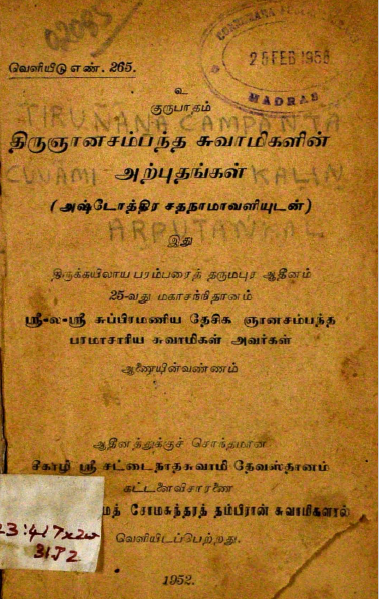 02085
வெளியீடு எண். 265.
25 FEB 1956
MADRAS
உ
குருபாதம்
TIRU NANA CAMPANTA
திருஞானசம்பந்த சுவாமிகளின்
CUVAMI KALIN
அற்புதங்கள்
(அஷ்டோத்திர சதநாமாவளியுடன்)
ARPUTANKAL
இது
திருக்கயிலாய பரம்பரைத் தருமபுர ஆதீனம்
25-வது மகாசந்நிதானம்
ஸ்ரீ-ல-ஸ்ரீ சுப்பிரமணிய தேசிக ஞானசம்பந்த
பரமாசாரிய சுவாமிகள் அவர்கள்
ஆணையின்வண்ணம்
ஆதீனத்துக்குச் சொந்தமான
சீகாழி ஸ்ரீ சட்டைநாதசுவாமி தேவஸ்தானம்
கட்டளைவிசாரணை
மத் சோமசுந்தரத் தம்பிரான் சுவாமிகளால்
வெளியிடப்பெற்றது.
31J2
1952.